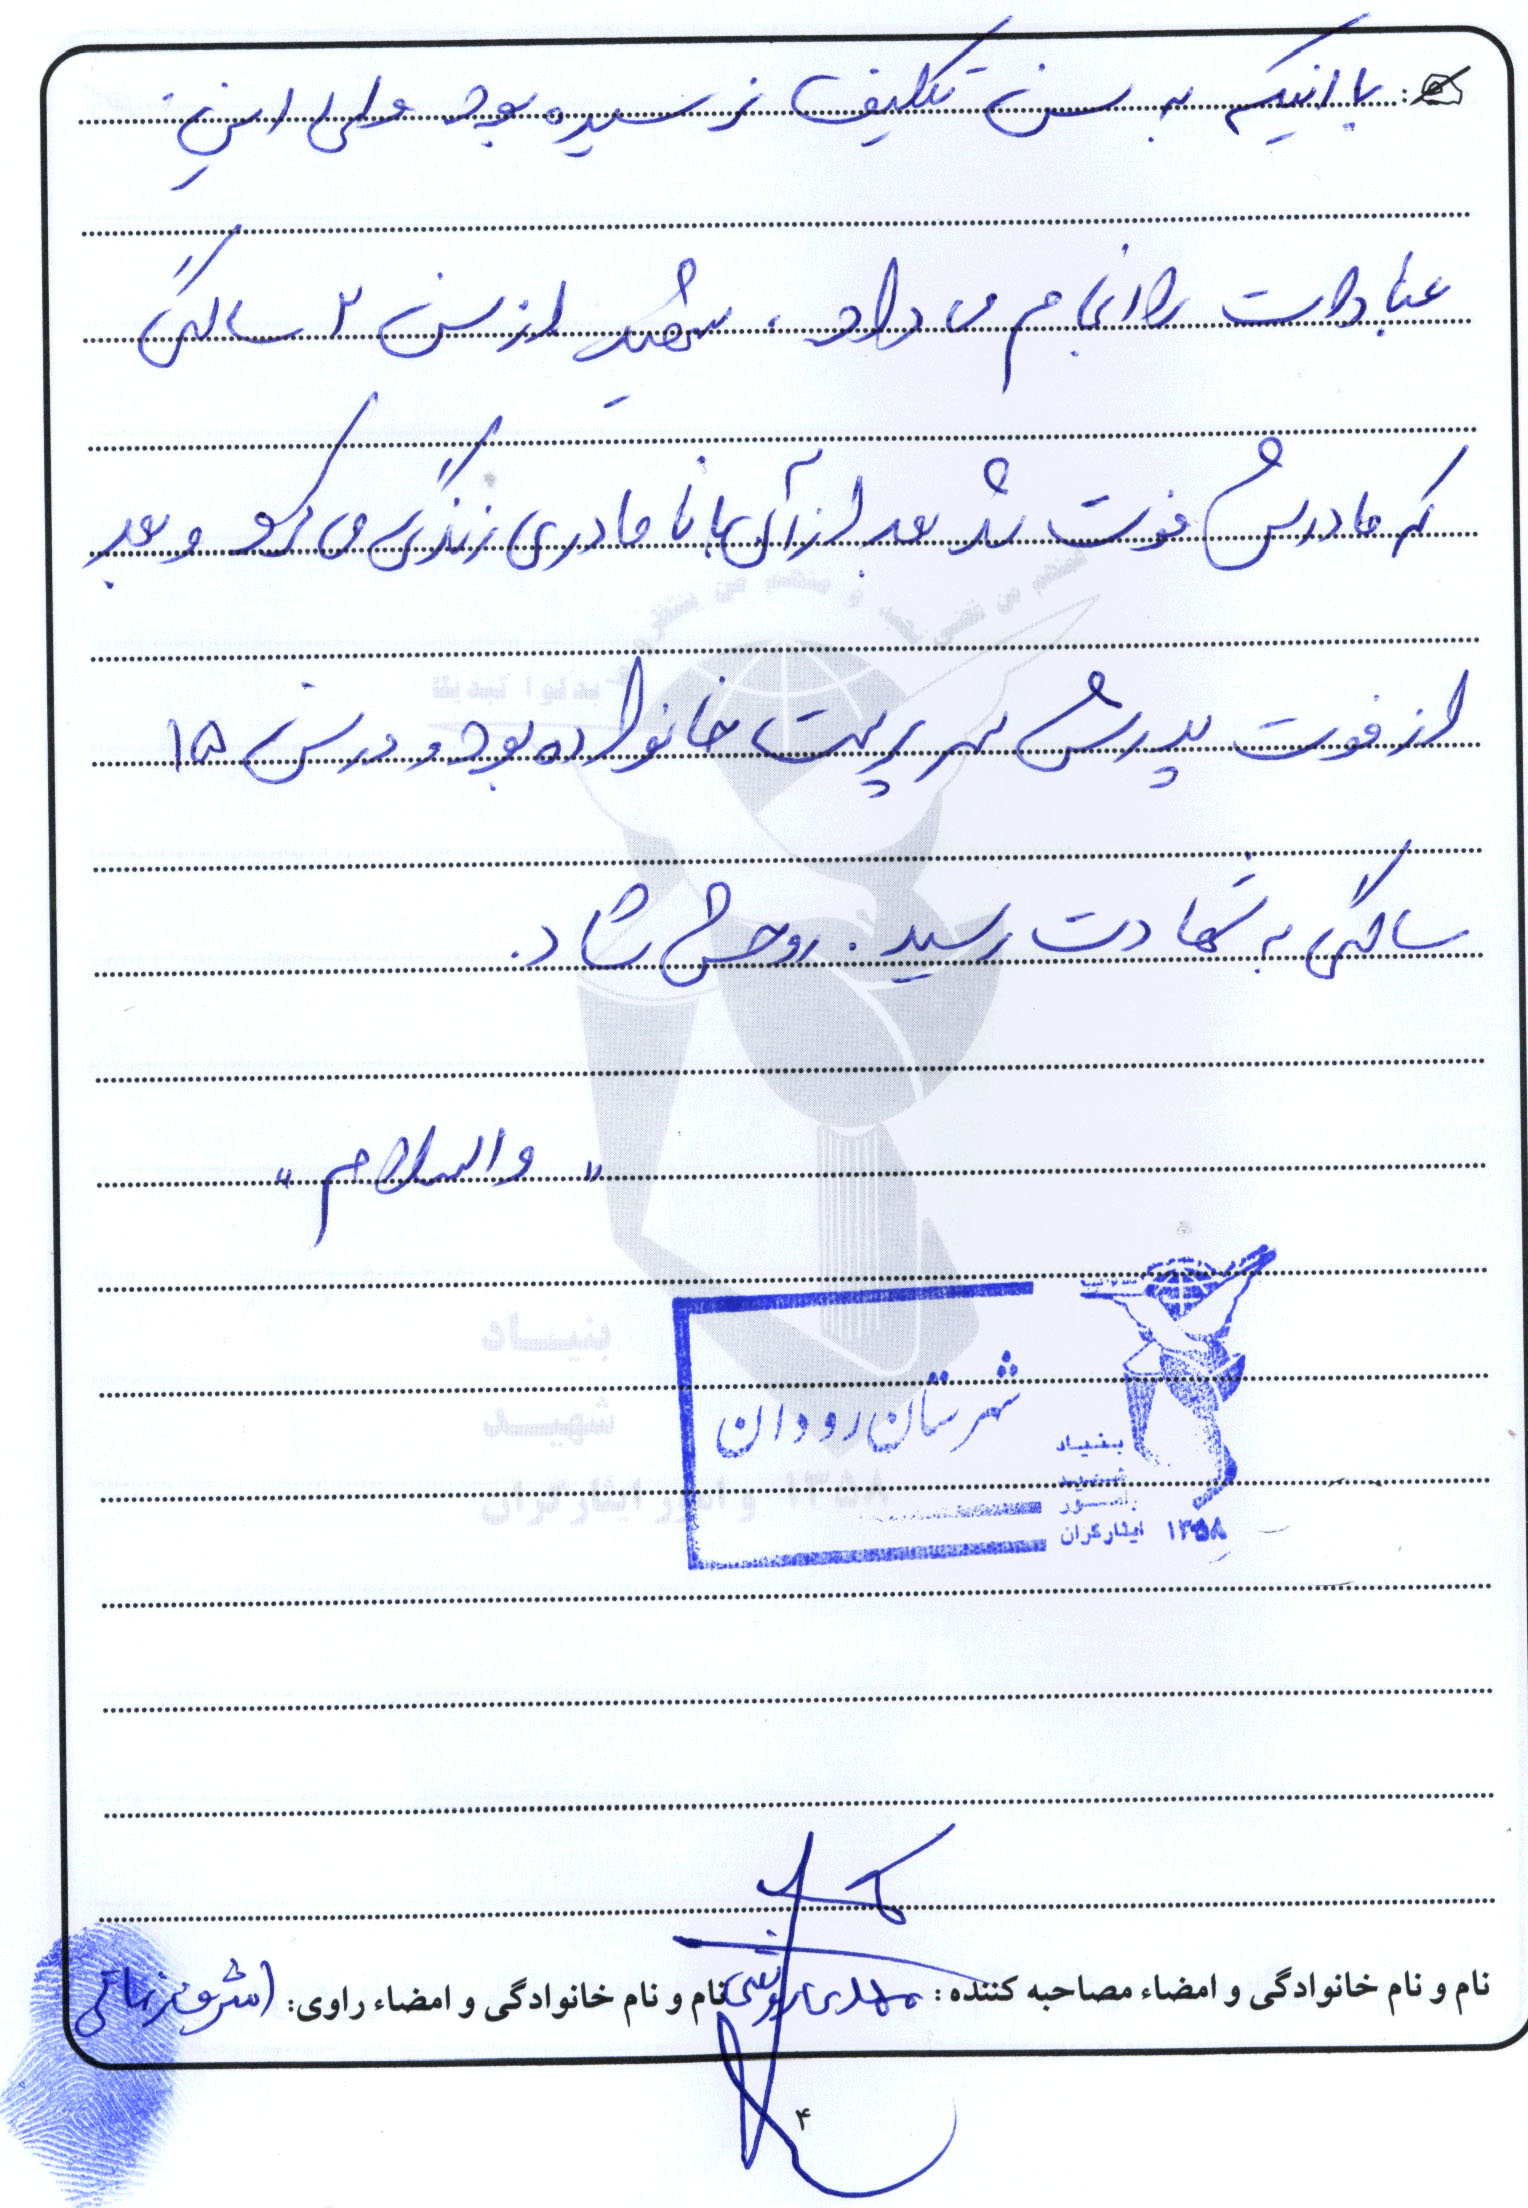 با اینکه به سن تکلیف نرسیده بود ولی این
عبادات را انجام می داد . شهید از سن ۲ سالگی
که مادرش فوت شد بعد از آن با نامادری زندگی می کرد و بعد
از فوت پدرش سرپرست خانواده بود و در سن ۱۵
سالگی به شهادت رسید . روحش شاد .
" والسلام "
بنیاد
شهید
و امور ایثارگران ۱۳۵۸
شهرستان رودان
بنیاد
شهید
و امور
ایثارگران ۱۳۵۸
نام و نام خانوادگی و امضاء مصاحبه کننده : مهدی نام و نام خانوادگی و امضاء راوی:
۴